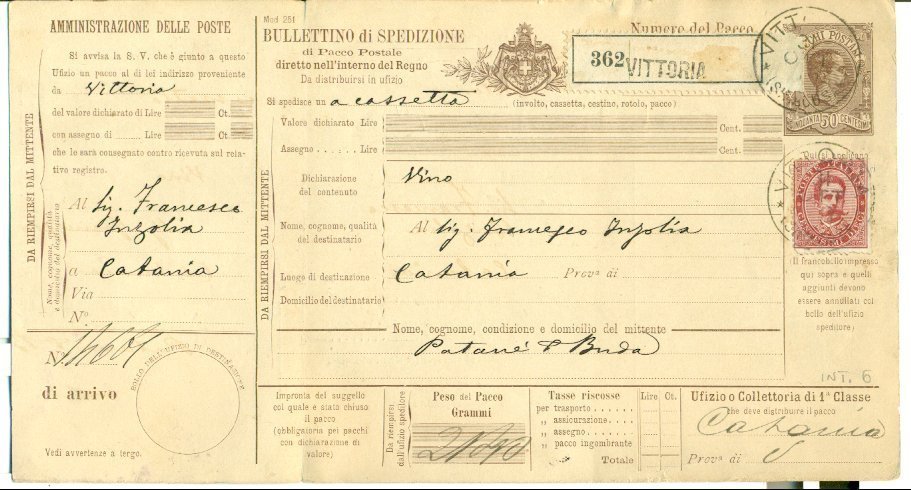 AMMINISTRAZIONE DELLE POSTE
Si avvisa la S. V. che è giunto a questo
Ufizio un pacco al di lei indirizzo proveniente
da Vittoria
del valore dichiarato di Lire Ct.
con assegno di Lire Ct.
che le sarà consegnato contro ricevuta sul rela-
tivo registro.
DA RIEMPIRSI DAL MITTENTE
Nome, cognome, qualità
e domicilio del destinatario
Al Sig. Francesco
Inzolia
a Catania
Via
No
No 14601
di arrivo
BOLLO DELL'UFIZIO DI DESTINAZIONE
Vedi avvertenze a tergo.
Mod 261
BULLETTINO di SPEDIZIONE
di Pacco Postale
diretto nell'interno del Regno
Da distribuirsi in ufizio
Numero del Pacco
362 VITTORIA
Si spedisce un a cassetta (involto, cassetta, cestino, rotolo, pacco)
Valore dichiarato Lire Cent.
Assegno . . . . . Lire Cent.
DA RIEMPIRSI DAL MITTENTE
Dichiarazione
del contenuto
Vino
Nome, cognome, qualità
del destinatario
Al Sig. Francesco Inzolia
Luogo di destinazione
Catania Prova di
Domicilio del destinatario
Nome, cognome, condizione e domicilio del mittente
Patané & Buda
Impronta del suggello
col quale è stato chiuso
il pacco
(obbligatoria pei pacchi
con dichiarazione di
valore)
Da riempirsi
dall'ufizio speditore
Peso del Pacco
Grammi
Tasse riscosse Lire Ct.
per trasporto
„ assicurazione
„ assegno
„ pacco ingombrante
Totale
Ufizio o Collettoria di 1a Classe
che deve distribuire il pacco
Catania
Prova di
50 CENTESIMI
(Il francobollo impresso
qui sopra e quelli
aggiunti devono
essere annullati col
bollo dell'ufizio
speditore)
INT. 6